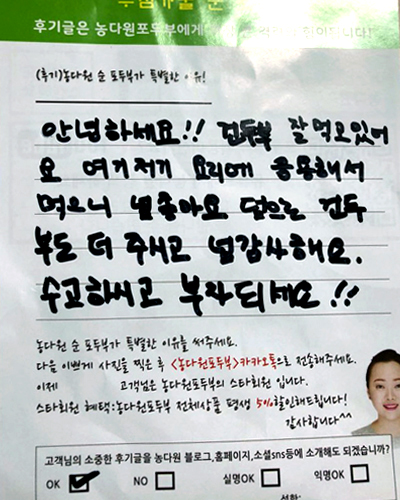 후기글은 농다원포두부에게
(후기)농다원 순 포두부가 특별한 이유!
안녕하세요!! 건두부 잘먹고있어
요 여기저기 요리에 응용해서
먹으니 넘좋아요 덤으로 건두
부도 더 주시고 넘감사해요.
수고하시고 부자되세요!!
농다원 순 포두부가 특별한 이유를 써주세요.
다음 이쁘게 사진을 찍은 후 <농다원포두부>카카오톡으로 전송해주세요.
이제 고객님은 농다원포두부의 스타회원 입니다.
스타회원 혜택:농다원포두부 전체상품 평생 5%할인해드립니다!
감사합니다^^
고객님의 소중한 후기글을 농다원 블로그,홈페이지,소셜sns등에 소개해도 되겠습니까?
OK NO 실명OK 익명OK